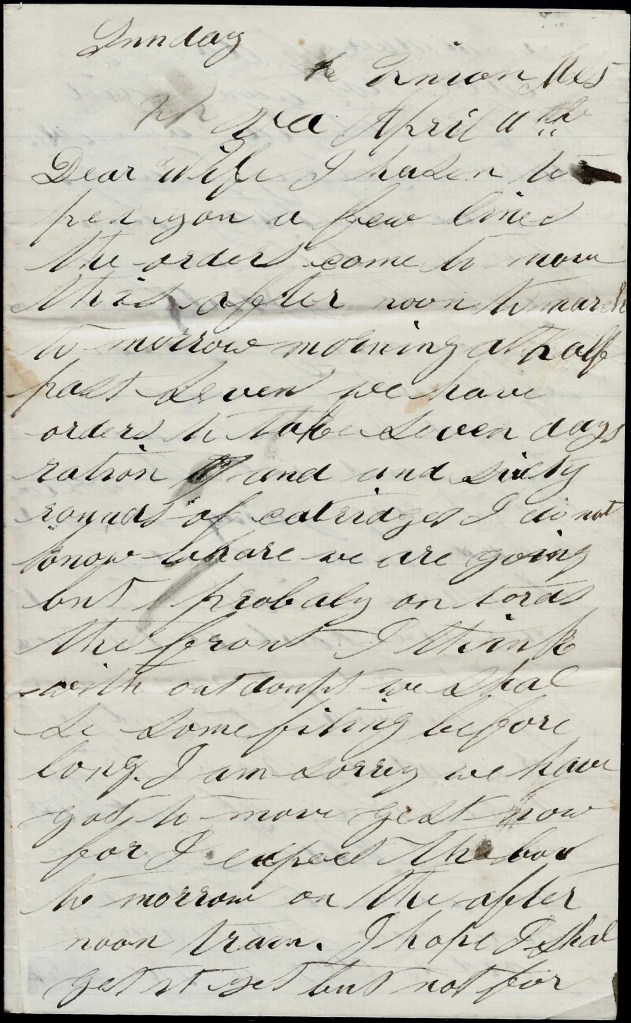 Sunday
Union Mls
Va April 11th
Dear Wife I hasen to
pen you a few lines
the orders come to move
this after noon to march
to morrow morning at half
past seven we have
orders to take seven days
ration and and sixty
rounds of catridges I do not
know whare we are going
but probaly on tords
the front I think
with out doupt we shal
se some fiting before
long. I am sorry we have
got to move gest now
for I expect the box
to morrow on the after
noon train. I hope I shal
get it yet but not for